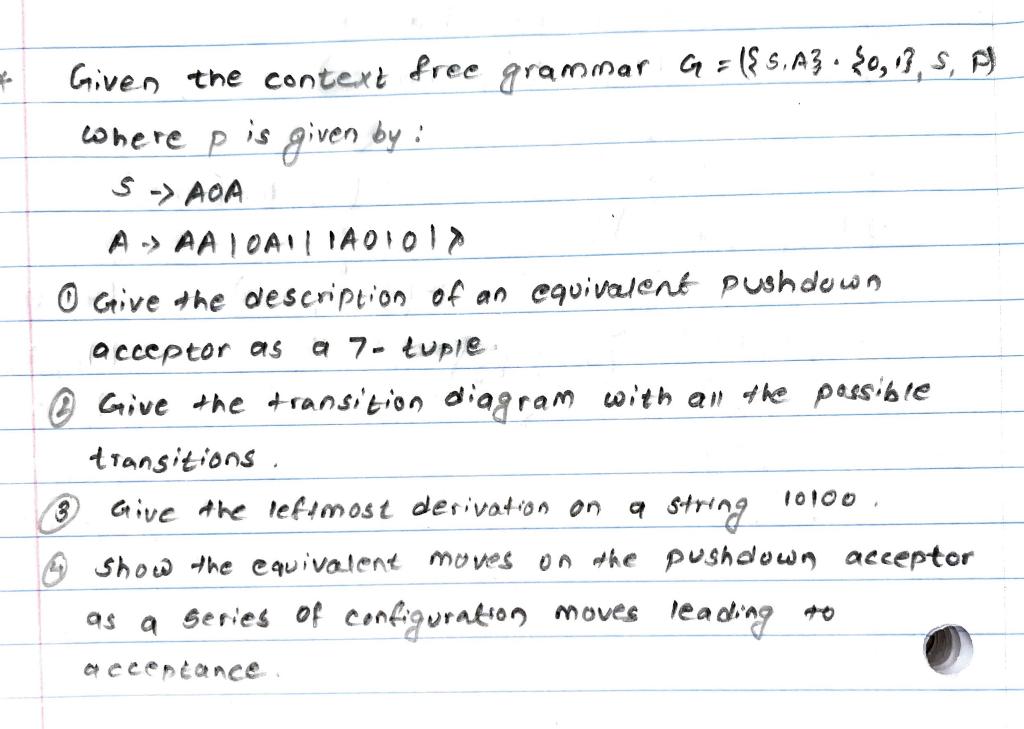 * Given the context free grammar G = ({S.A} . {0,1}, S, P)
where p is given by :
S -> A0A
A -> AA | 0A1 | 1A0 | 0 | λ
① Give the description of an equivalent pushdown
acceptor as a 7- tuple.
② Give the transition diagram with all the possible
transitions.
③ Give the leftmost derivation on a string 10100.
④ Show the equivalent moves on the pushdown acceptor
as a series of configuration moves leading to
acceptance.